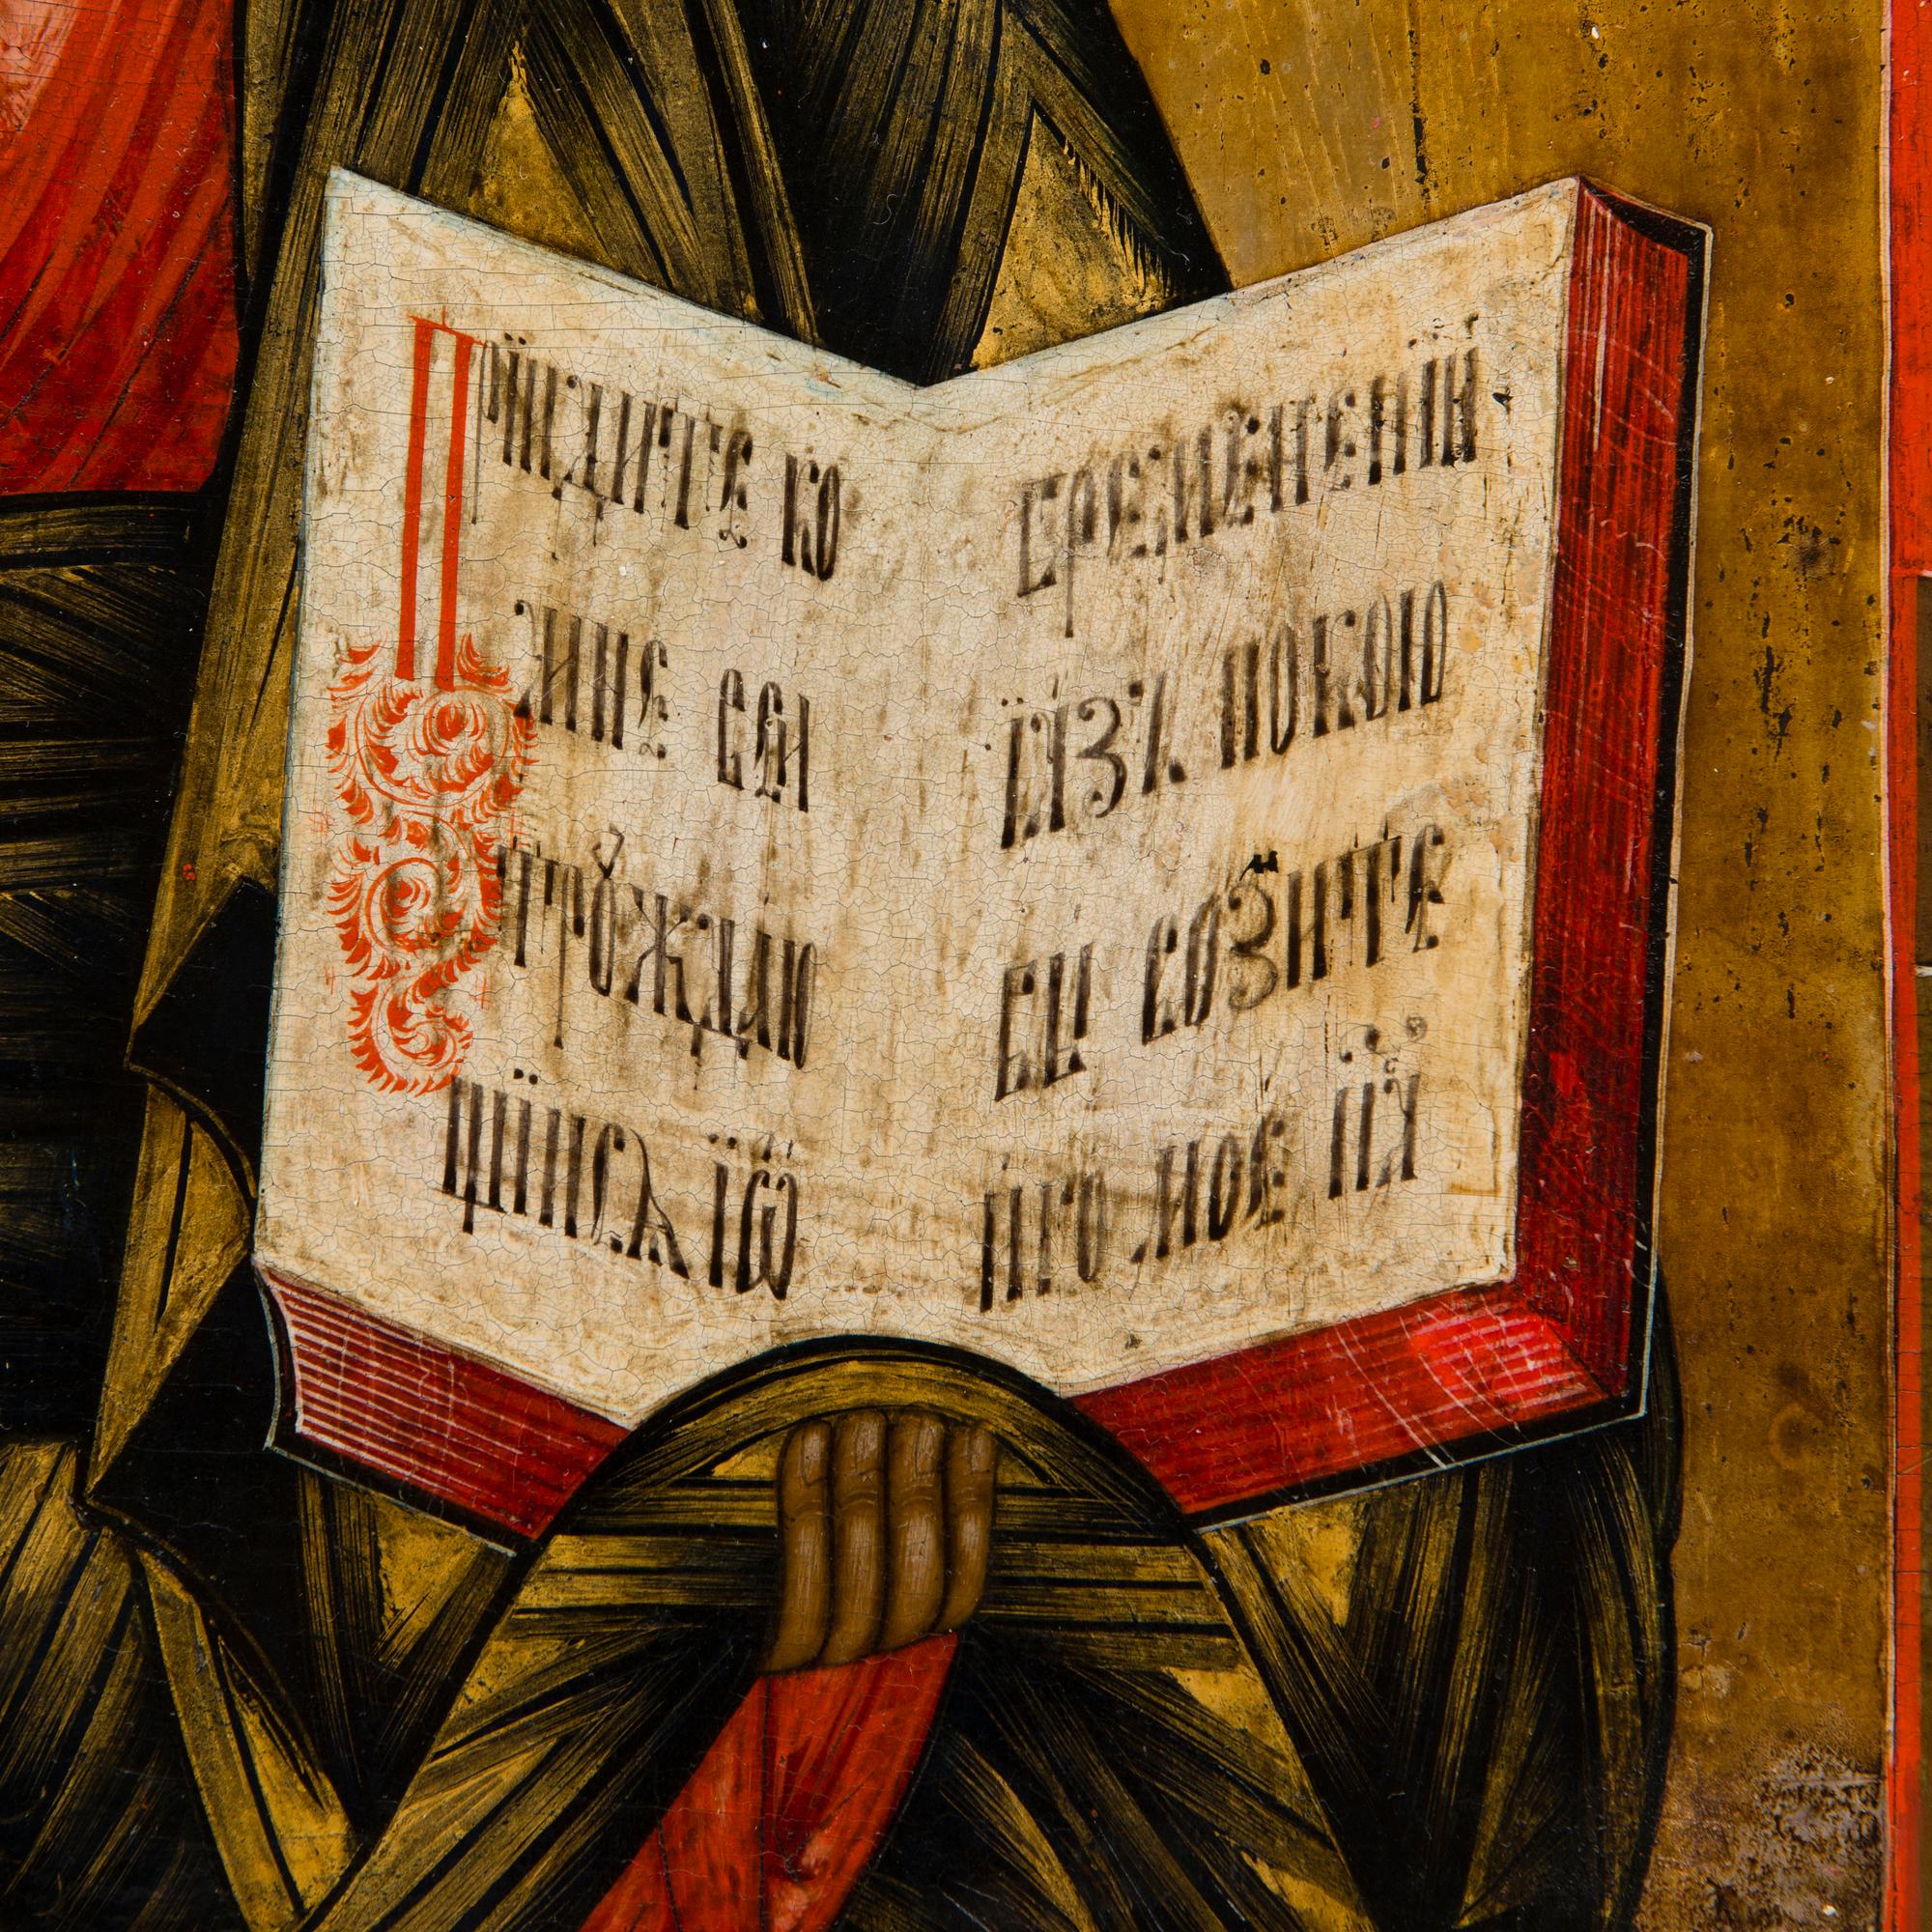 Прїидите ко
мне вси
трꙋждаю
щїисѧ їѡ
бремененїи
їазъ покою
вы возⷨите
иго мое на